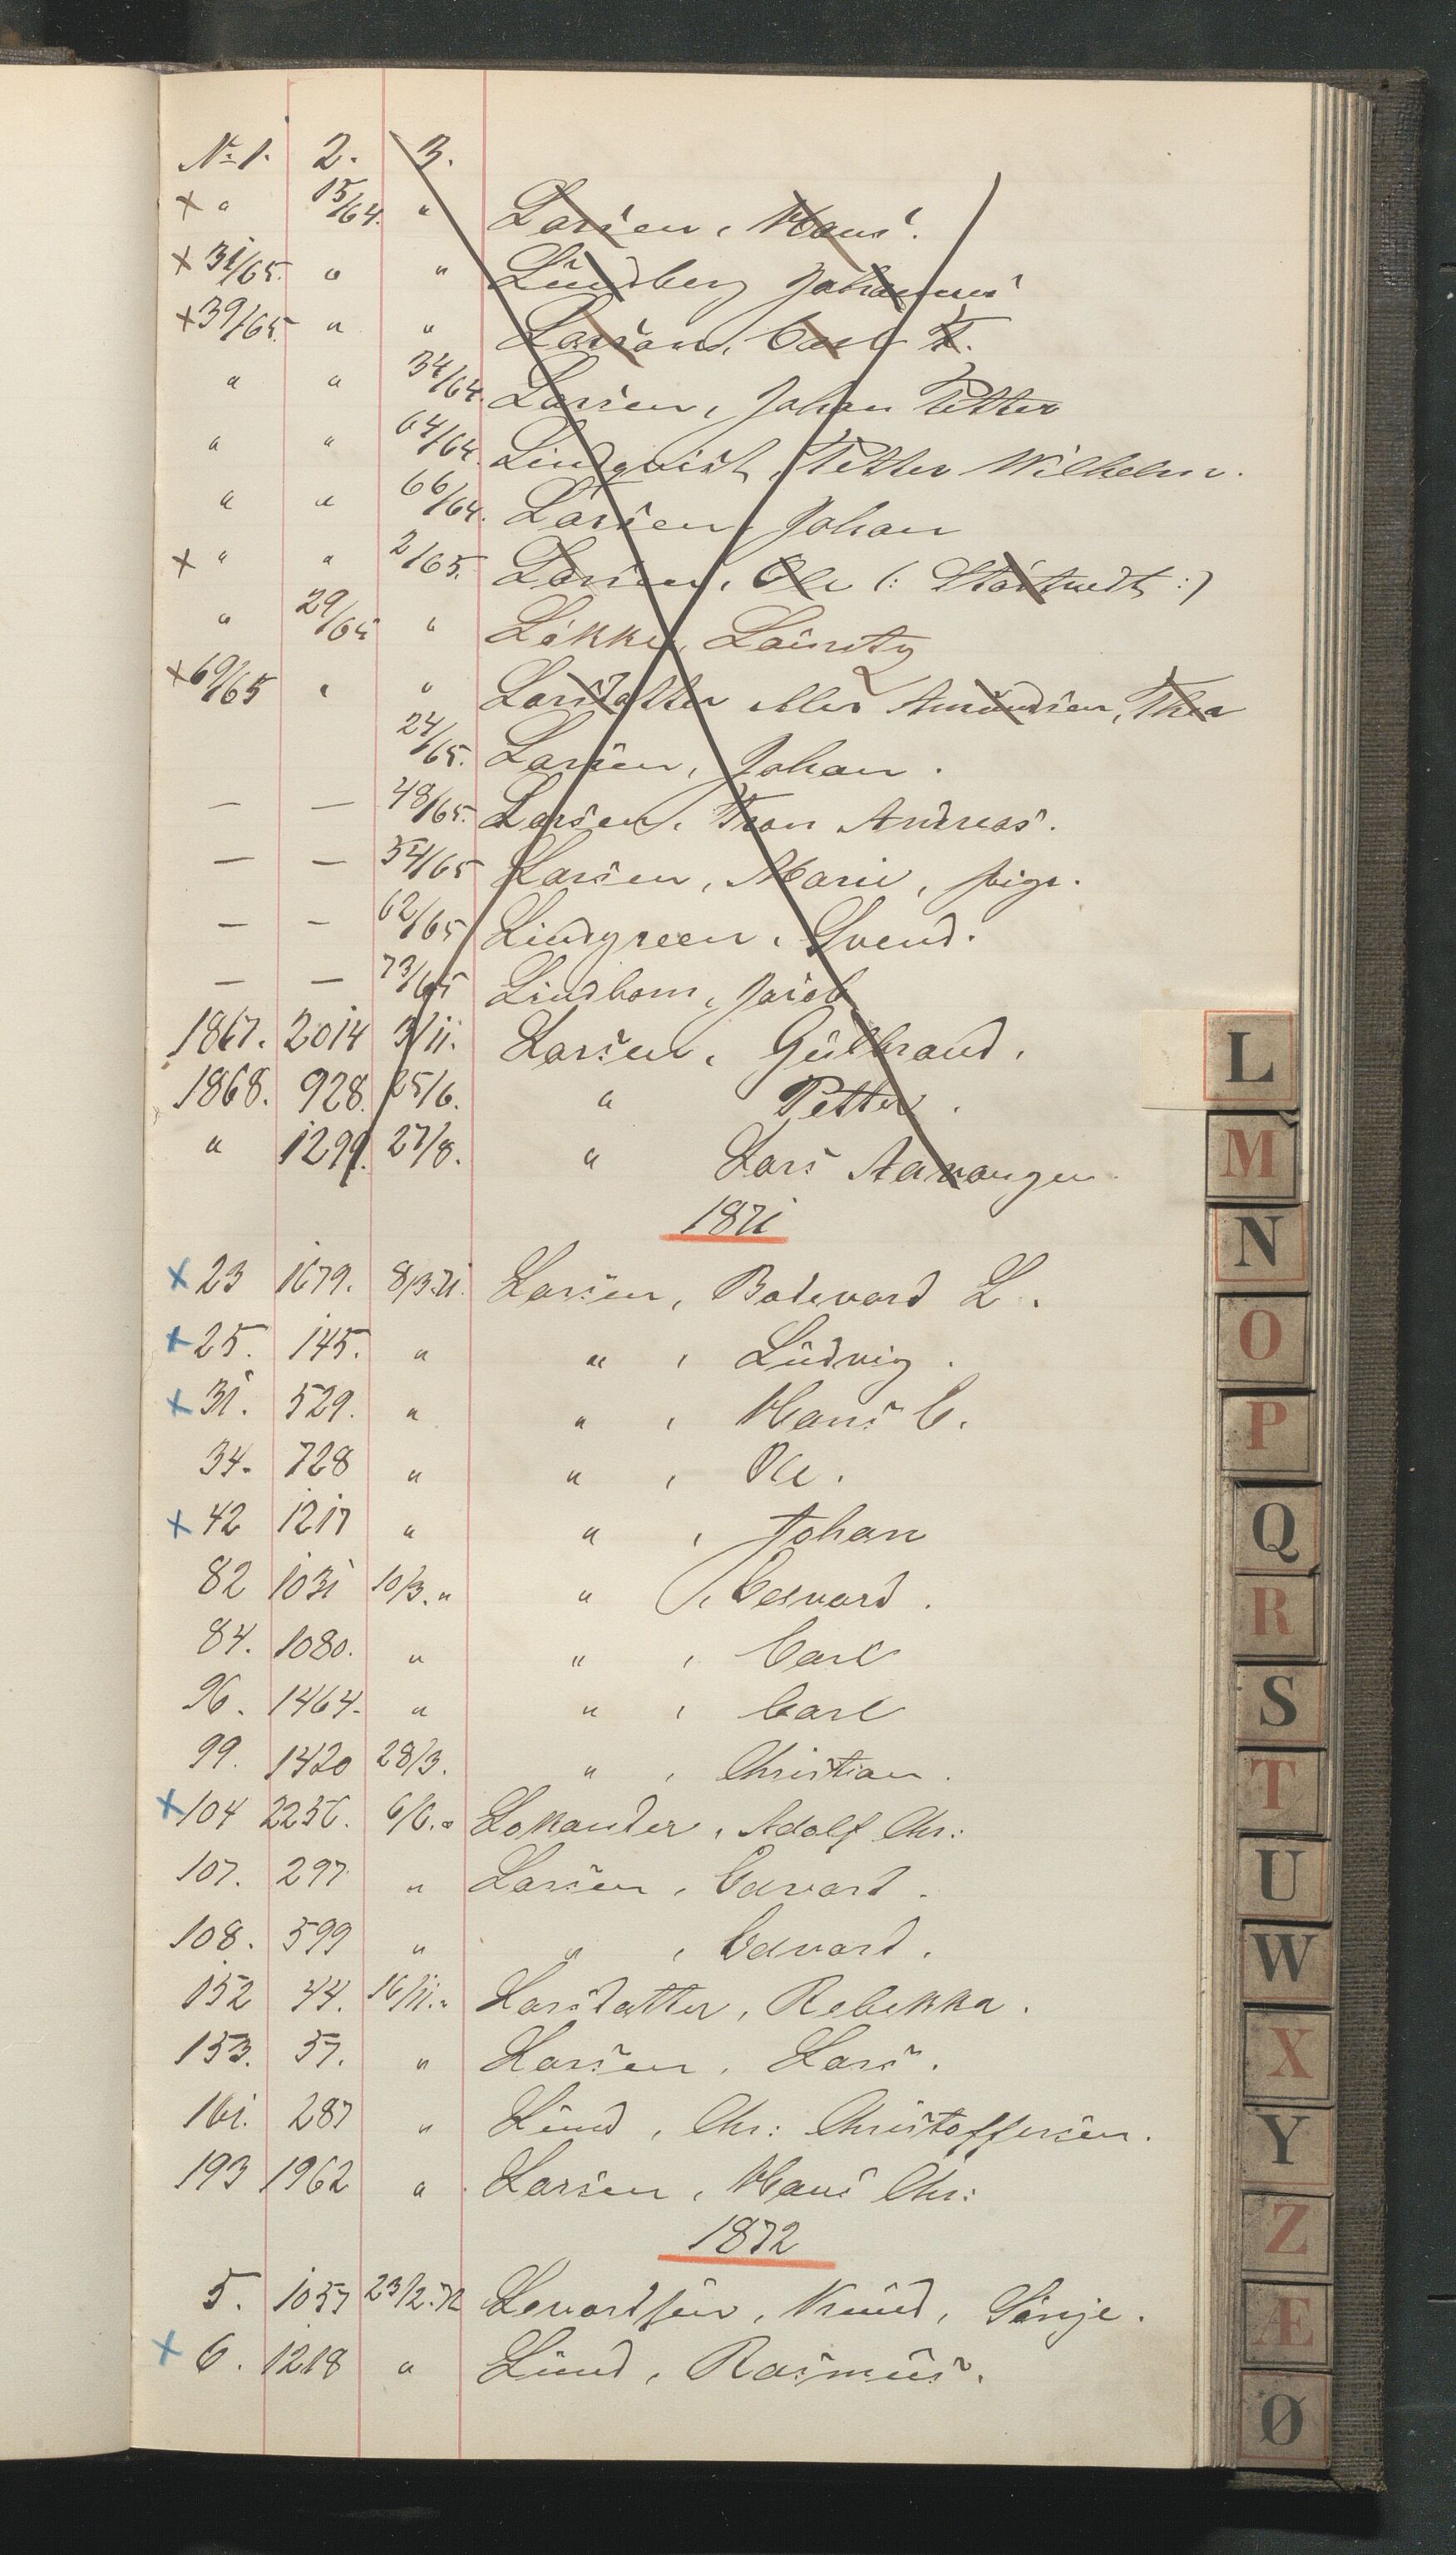 No 1. 2. 3.
× " 15/64. " Larsen, Hans.
× 31/65. " " Lundberg Johannes
× 39/65. " " Larsen, Carl F.
" " 34/64. Larsen, Johan Petter
" " 64/64. Lindqvist, Petter Wilhelm.
" " 66/64. Larsen, Johan
× " " 2/65. Larsen, Ole (: :)
" 29/65 " Løkke, Lauritz
× 69/65 " " Larsdatter eller Amundsen, Thea
24/65. Larsen, Johan.
— — 48/65. Larsen, Andreas.
— — 54/65 Larsen, Marie, pige.
— — 62/65 Lindgreen, Svend.
— — 73/65 Lindbom, Jacob
1867. 2014 3/11. Larsen, Gulbrand.
1868. 928. 25/6. " Petter.
" 1299. 27/8. " Lars Aavangen.
1871
× 23 1679. 8/3.71. Larsen, Bodevard L.
× 25. 145. " " , Ludvig.
× 31. 529. " " , Hans C.
34. 728 " " , Ole.
× 42 1217 " " , Johan
82 1031 10/3. " " , Edvard.
84. 1080. " " , Carl
96. 1464. " " , Carl
99. 1420 28/3. " , Christian.
× 104 2256. 6/6. " Lokander, Adolf Chr:
107. 297 " Larsen, Edvard.
108. 599 " " , Edvard.
152 44. 16/11. " Larsdatter, Rebekka.
153. 57. " Larsen, Lars.
161. 287 " Lund, Chr: Christoffersen.
193 1962 " Larsen, Hans Chr:
1872
5. 1057 23/2.72 Levordsen, Knud,
× 6. 1218 " Lund, Rasmus.
L
M
N
O
P
Q
R
S
T
U
W
X
Y
Z
Æ
Ø